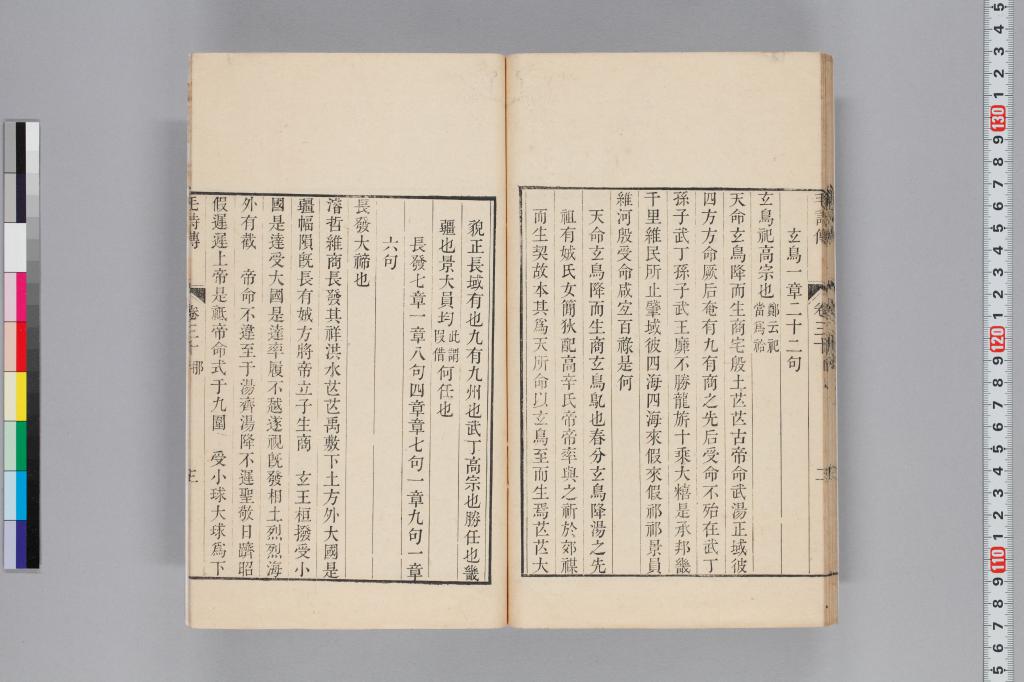 玄鳥一章二十二句
玄鳥祀高宗也鄭云祀當爲祫
天命玄鳥降而生商宅殷土芒芒古帝命武湯正域彼
四方方命厥后奄有九有商之先后受命不殆在武丁
孫子武丁孫子武王靡不勝龍旂十乘大糦是承邦畿
千里維民所止肇域彼四海四海來假來假祁祁景員
維河殷受命咸宜百祿是何
天命玄鳥降而生商玄鳥鳦也春分玄鳥降湯之先
祖有娀氏女簡狄配高辛氏帝帝率與之祈於郊禖
而生契故本其爲天所命以玄鳥至而生焉芒芒大
貌正長域有也九有九州也武丁高宗也勝任也畿
疆也景大員均此謂叚借何任也
長發七章一章八句四章章七句一章九句一章
六句
長發大禘也
濬哲維商長發其祥洪水芒芒禹敷下土方外大國是
疆幅隕旣長有娀方將帝立子生商　玄王桓撥受小
國是達受大國是達率履不越遂視旣發相土烈烈海
外有截　帝命不違至于湯齊湯降不遲聖敬日躋昭
假遲遲上帝是祗帝命式于九圍　受小球大球爲下
毛詩傳
卷三十　那